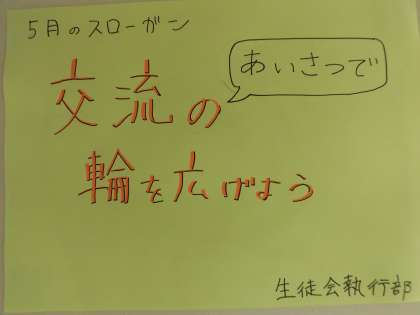 5月のスローガン
あいさつで
交流の
輪を広げよう
生徒会執行部